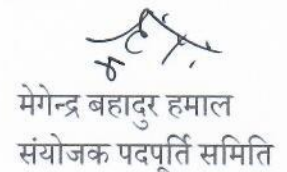 मेगेन्द्र बहादुर हमाल
संयोजक पदपूर्ति समिति